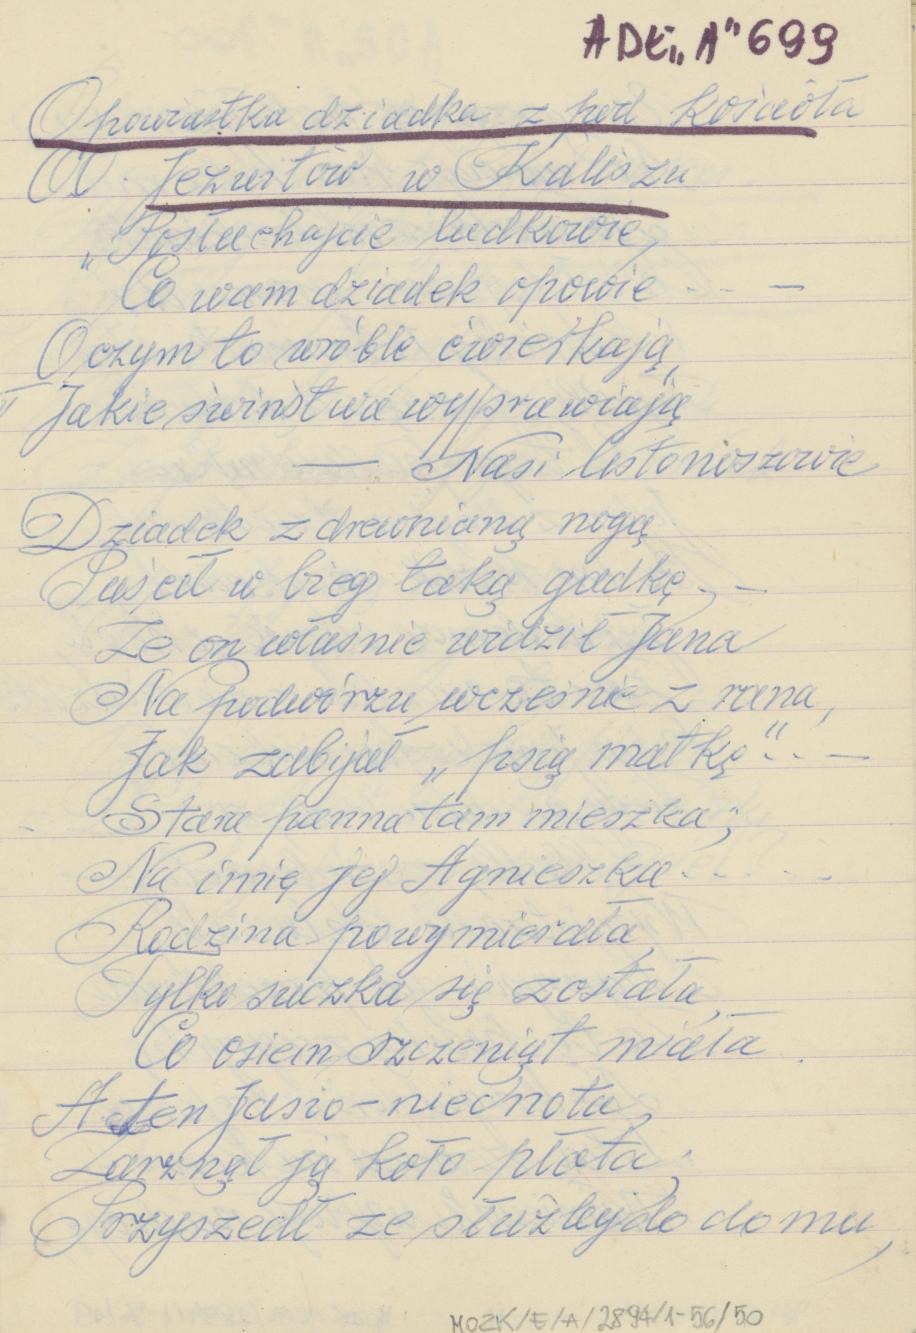 ADŁ „A" 699
Opowiastka dziadka z pod kościoła
OO. Jezuitów w Kaliszu
„Posłuchajcie ludkowie,
Co wam dziadek opowie - - - —
O czym to wróble ćwierkają,
Jakie świństwa wyprawiają
— Nasi listonoszowie
Dziadek z drewnianą nogą
Puścił w bieg taką gadkę - —
Że on właśnie widził Jana
Na podwórzu wcześnie z rana,
Jak zabijał „psią matkę". . —
Stara panna tam mieszka;
Na imię jej Agnieszka - . . .
Rodzina powymierała,
Tylko suczka się została,
Co osiem szczeniąt miała.
A ten Jasio-niecnota,
Zarznął ją koło płota;
Przyszedł ze służby do domu,
MOZK/E/A/2894/1-56/50